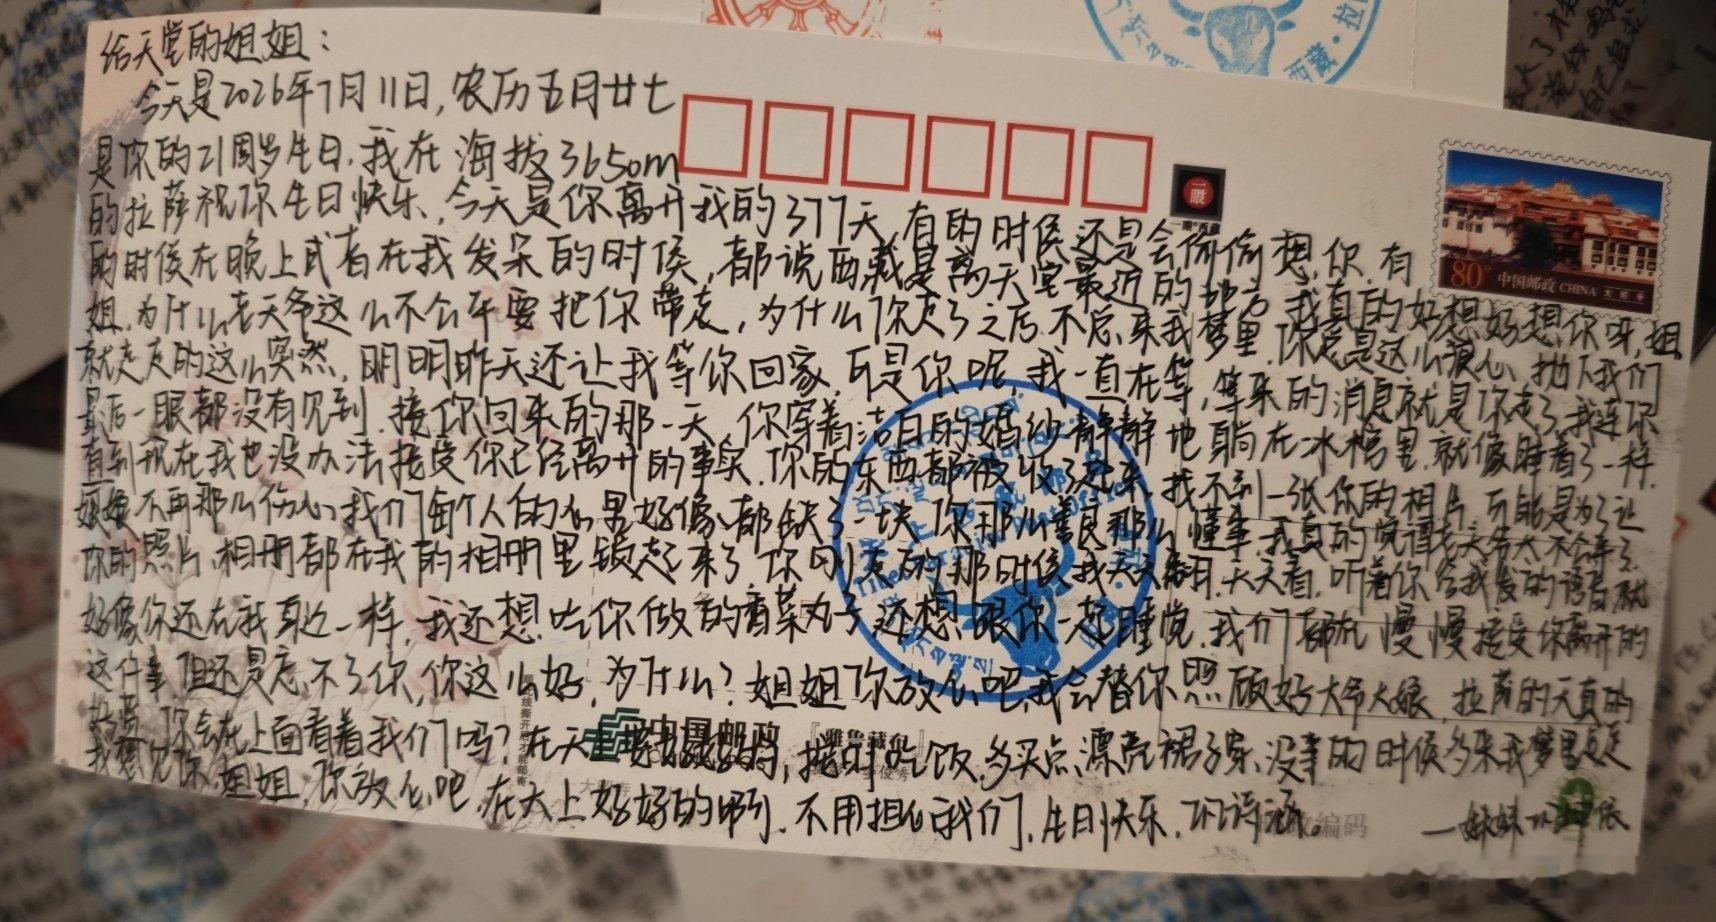 给天堂的姐姐：
今天是2026年7月11日，农历五月廿七
是你的21周岁生日，我在海拔3650m
的拉萨祝你生日快乐，今天是你离开我的377天，有的时候还是会偷偷想你，有
的时候在晚上或者在我发呆的时候，都说西藏是离天堂最近的地方，我真的好想好想你呀，姐
姐，为什么老天爷这么不公平要把你带走，为什么你走了之后不总来我梦里，你总是这么狠心，抛下我们
就走，走的这么突然，明明昨天还让我等你回家，可是你呢，我一直在等，等来的消息就是你走了，我连你
最后一眼都没有见到，接你回来的那一天，你穿着洁白的婚纱静静地躺在冰棺里，就像睡着了一样，
直到现在我也没办法接受你已经离开的事实，你的东西都被收了起来，找不到一张你的相片，可能是为了让
娘娘不再那么伤心，我们每个人的心里好像都缺了一块，你那么善良那么懂事，我真的觉得老天爷太不公平了，
你的照片，相册都在我的相册里锁起来了，你刚走的那时候，我天天翻，天天看，听着你给我发的语音就
好像你还在我身边一样，我还想吃你做的香菜丸子，还想跟你一起睡觉，我们都在慢慢接受你离开的
这件事，但还是忘不了你，你这么好，为什么？姐姐你放心吧，我会替你照顾好大爷大娘，拉萨的天真的
好蓝，你会在上面看着我们吗？在天上要好好的，按时吃饭，多买点漂亮裙子穿，没事的时候多来我梦里见见
我想见你，姐姐，你放心吧，在天上好好的哟，不用担心我们，生日快乐，诗涵。
—妹妹
一眼
80 中国邮政 CHINA 大昭寺
中国邮政
『雅鲁藏布』
编码
西藏·拉